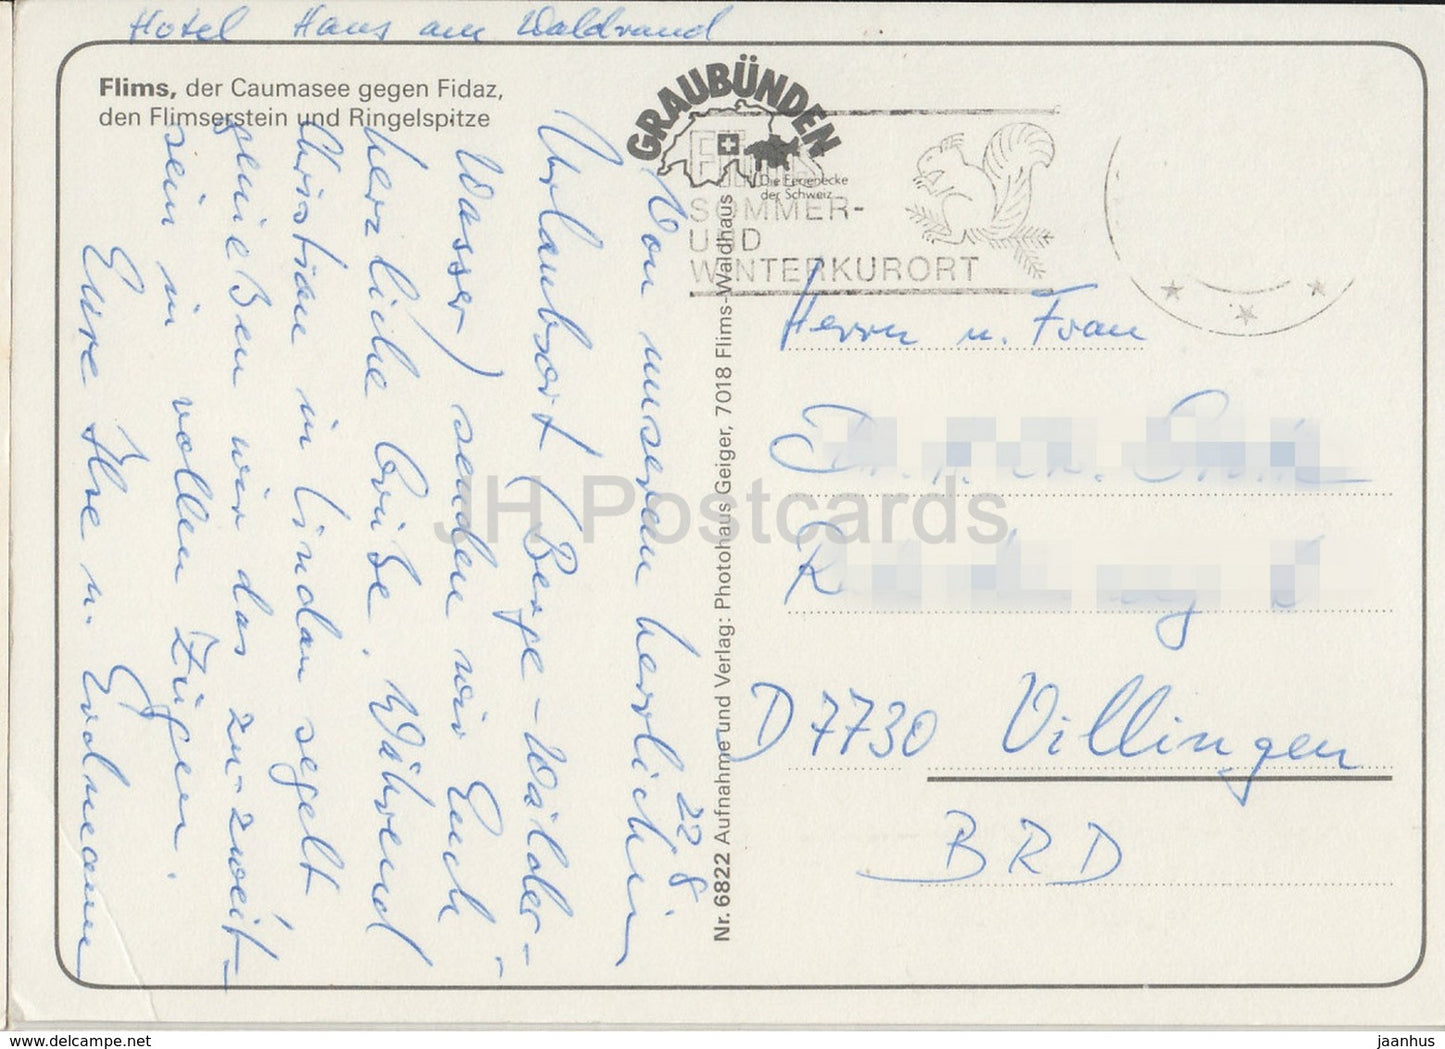 Hotel Haus am Waldrand
Flims, der Caumasee gegen Fidaz,
den Flimserstein und Ringelspitze
22.8.
Von unserem herrlichen
Urlaubsort (Berge-Wälder-
Wasser) senden wir Euch
herzliche Grüße. Während
Christian in Lindau segelt
genießen wir das zu-zweit-
sein in vollen Zügen.
Eure Ilse u. Erdmann
Nr. 6822 Aufnahme und Verlag: Photohaus Geiger, 7018 Flims-Waldhaus
GRAUBÜNDEN
Die Ferienecke
der Schweiz
FLIMS
SOMMER-
UND
WINTERKURORT
Herrn u. Frau
D 7730 Villingen
BRD
JH Postcards
www.delcampe.net
jaanhus